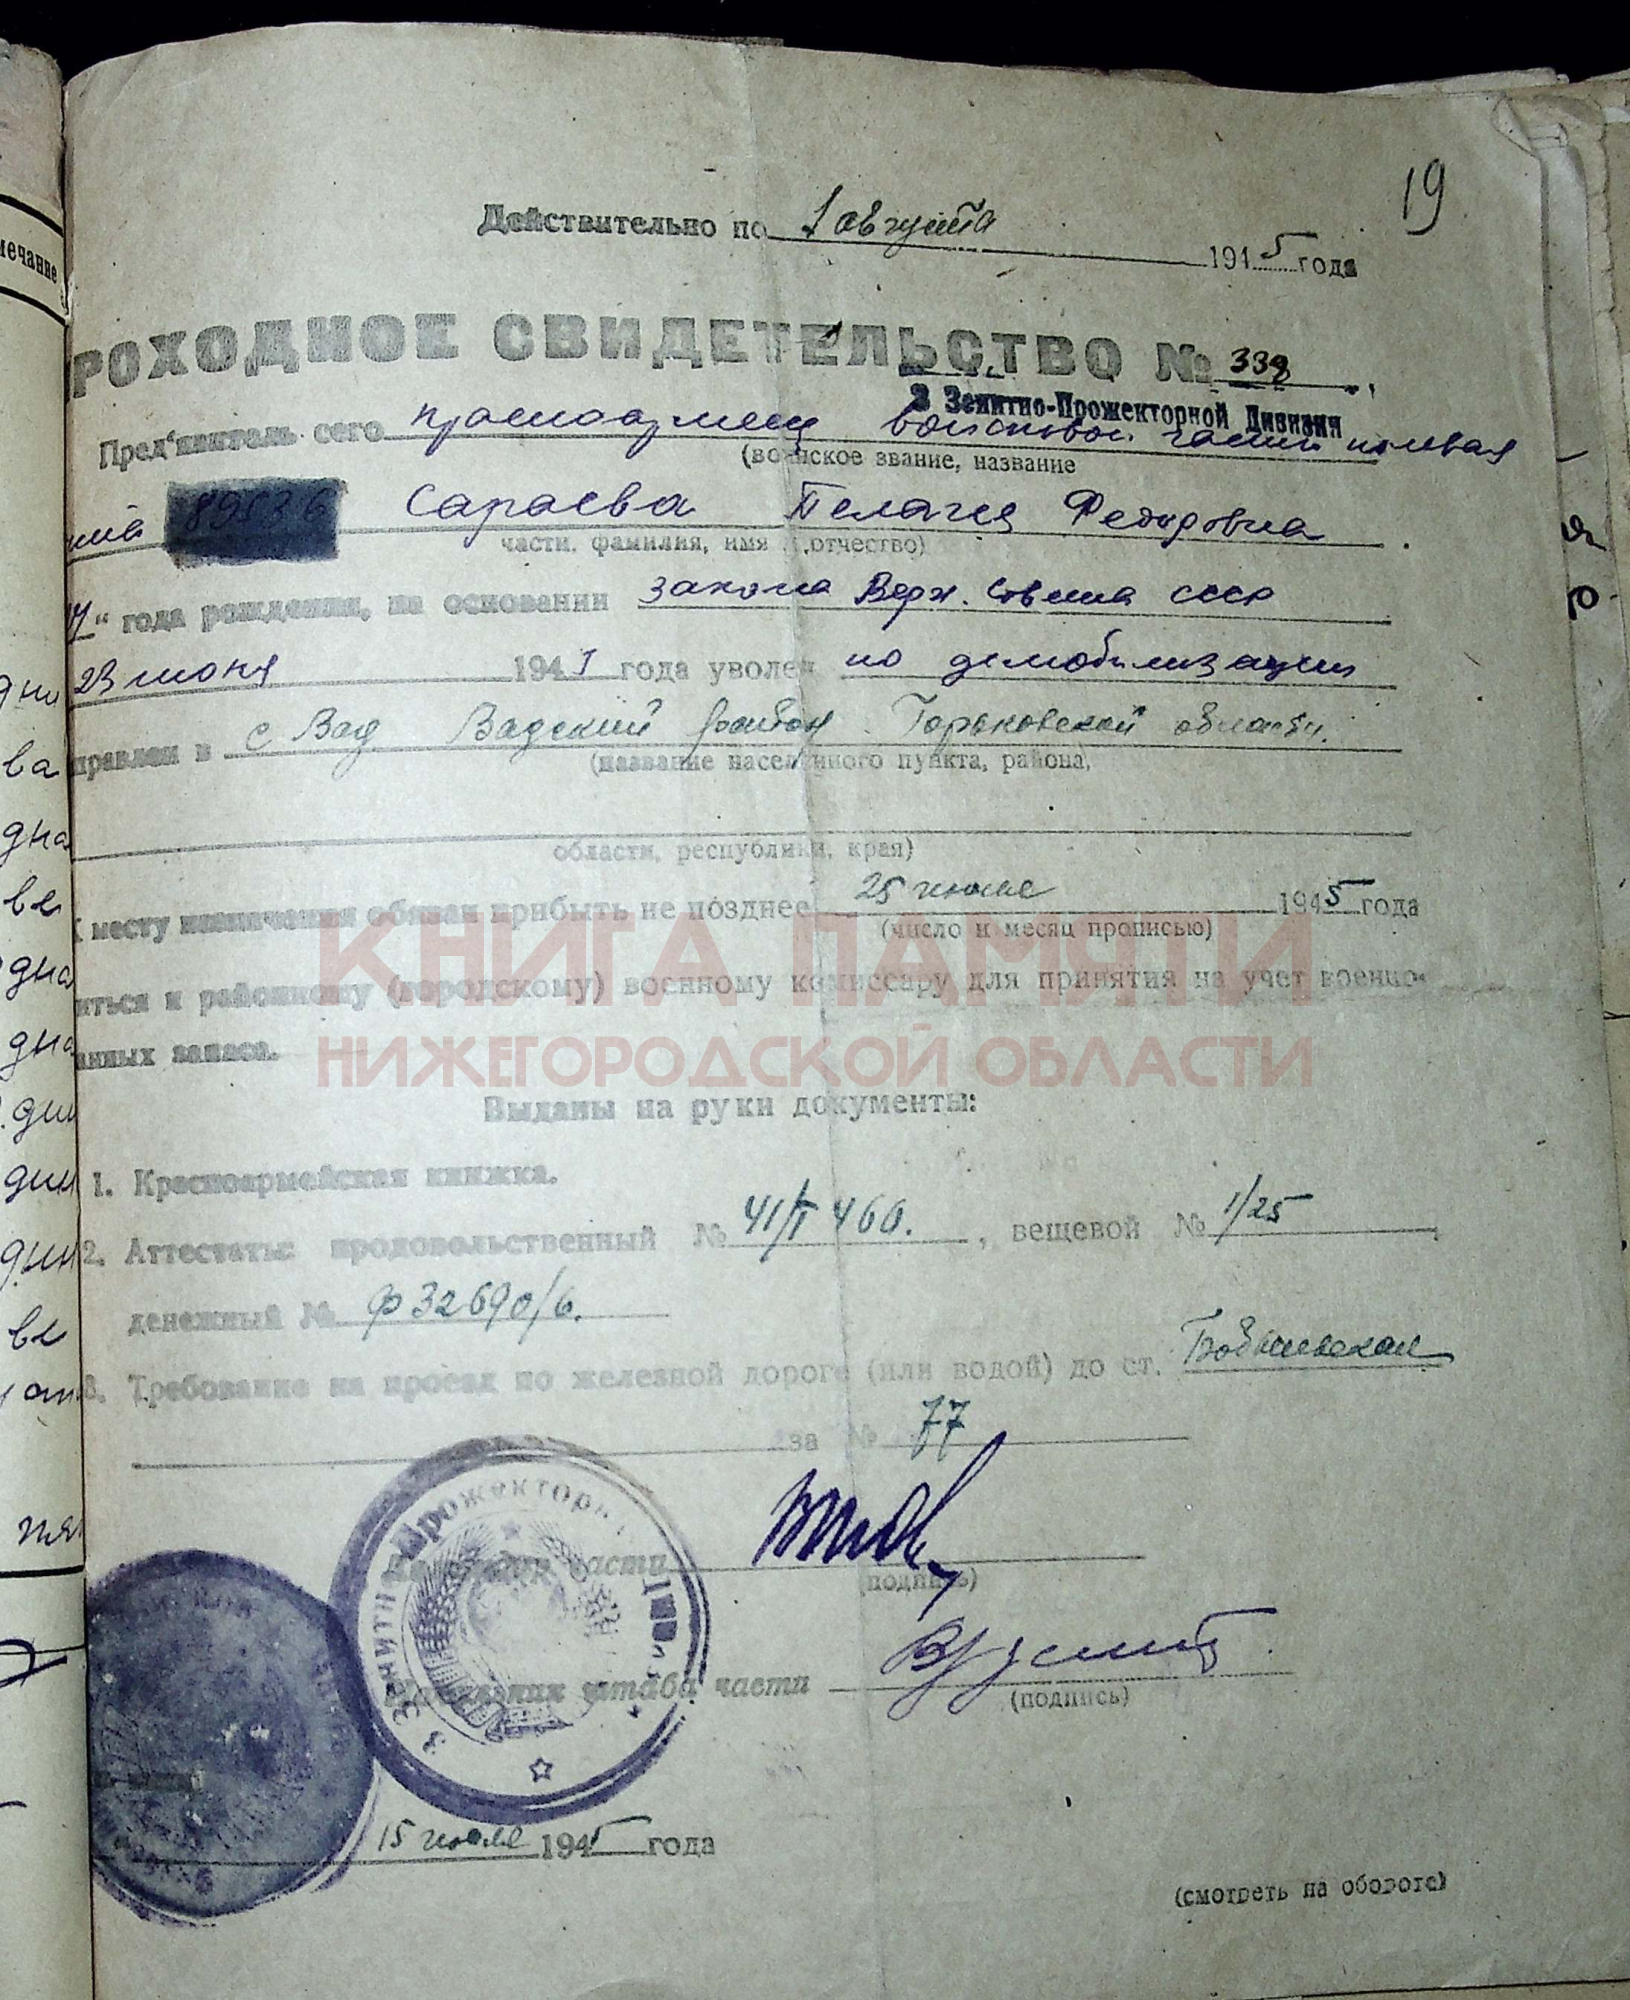 19
Действительно по 1 августа 1945 года
РОХОДНОЕ СВИДЕТЕЛЬСТВО №
3 Зенитно-Прожекторной Дивизии
Пред'явитель сего красноармеец войсковой части полевая
(воинское звание, название
89536 Сараева Пелагея Федоровна
части, фамилия, имя и отчество)
года рождения, на основании закона Верх. Совета СССР
23 июня 194 года уволен по демобилизации
правлен в с. Вад Вадский район Горьковской области.
(название населенного пункта, района,
области, республики, края)
К месту назначения обязан прибыть не позднее 25 июля 1945 года
(число и месяц прописью)
иться к районному (городскому) военному комиссару для принятия на учет военно-
анных запаса.
КНИГА ПАМЯТИ
НИЖЕГОРОДСКОЙ ОБЛАСТИ
Выданы на руки документы:
1. Красноармейская книжка.
2. Аттестаты: продовольственный № 41/т 460. , вещевой № 1/25
денежный № Ф32690/6.
3. Требование на проезд по железной дороге (или водой) до ст.
за № 77
Командир части
(подпись)
Начальник штаба части
(подпись)
3 Зенитно Прожекторная Дивизия
15 июля 1945 года
(смотреть на обороте)